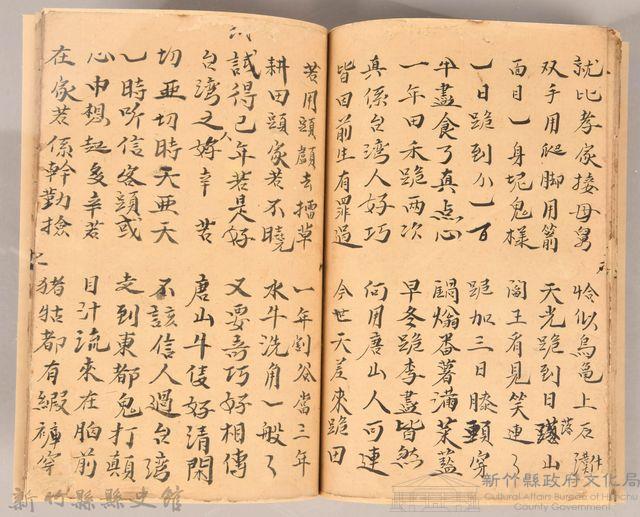 就比孝家接母舅 恰似烏龜上石
双手用爬脚用箭 天光跪到日落山
面目一身坭鬼樣 閻王看見笑連了
一日跪到小一百 跪加三日膝頭穿
半盡食了真点心 番薯滿菜籃
一年田禾跪两次 早冬跪季盡皆然
真係台湾人好巧 何用唐山人可連
皆因前生有罪過 今世天差來跪田
若用頭顱去擂草 一年割谷當三年
耕田頭家若不曉 水牛洗角一般了
試得己年若是好 又要奇巧好相傳
台湾之人好辛苦 唐山牛隻好清閑
切亜切時天亜天 不該信人過台湾
一時听信客頭或 走到東都鬼打顛
心中想起多辛若 目汁流來在胸前
在家若係幹勤撿 猪牯都有緞褲穿
新竹縣縣史館
新竹縣政府文化局
Cultural Affairs Bureau of Hsinchu County Government